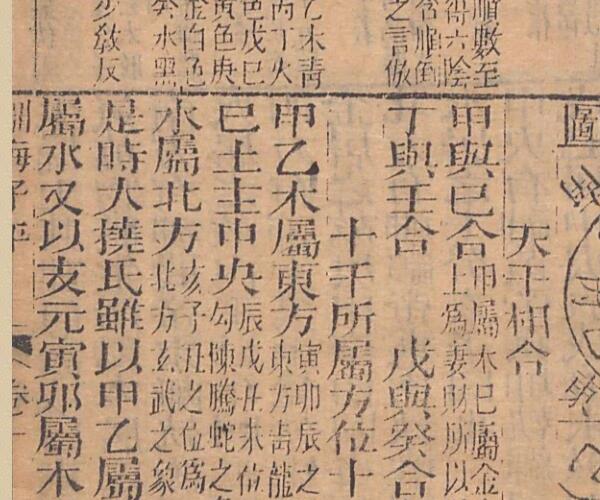 順數至
得六陰
含順倒
之言倣
乙未青
丙丁火
色戊巳
黃色庚
金白色
癸水黑
少敎反
圖
天干相合
甲與巳合
甲屬木巳屬金
上爲妻財所以
丁與壬合 戊與癸合
十干所屬方位十
甲乙木屬東方
寅卯辰之
東方靑龍
巳土主中央
辰戊丑未位
勾陳騰蛇之
水屬北方
亥子丑之位爲
北方玄武之象
是時大撓氏雖以甲乙屬
屬水又以亥元寅卯屬木
淵海子平 卷一